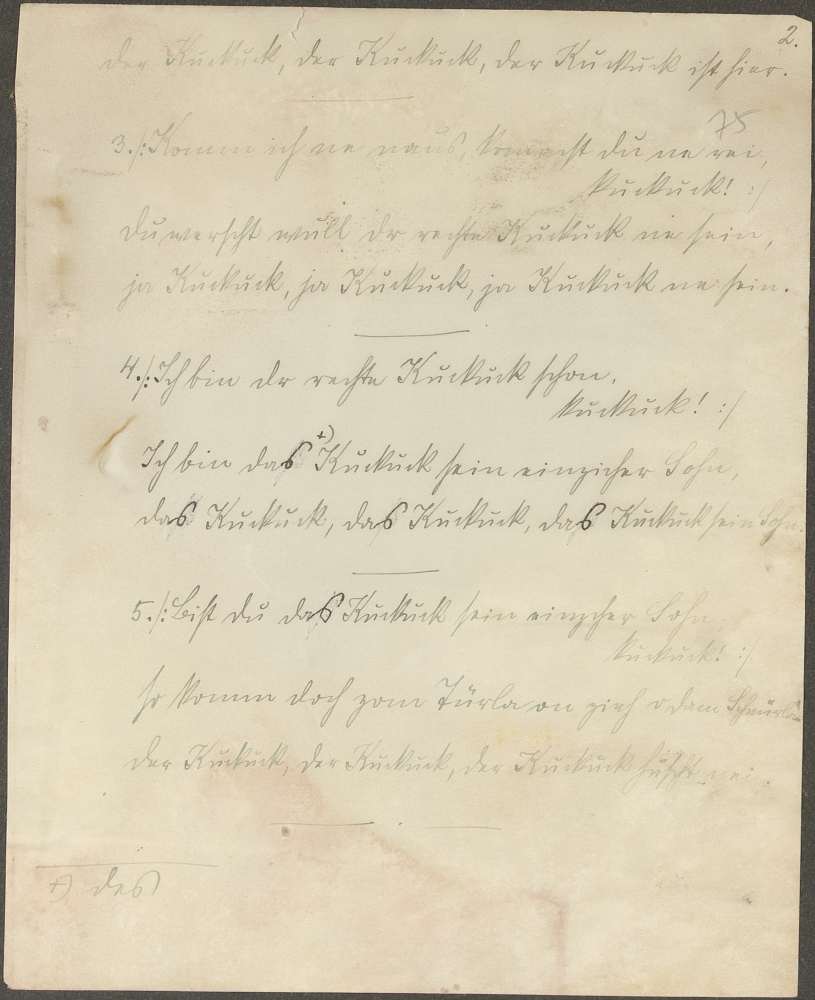 2.
der Kuckuck, der Kuckuck, der Kuckuck ist hier.
75
3. /: Komm ich ne naus, kommst du ne rei,
Kuckuck! :/
Du werscht wull dr rechte Kuckuck ne sein,
ja Kuckuck, ja Kuckuck, ja Kuckuck ne sein.
4. /: Ich bin dr rechte Kuckuck schon,
Kuckuck! :/
Ich bin das +) Kuckuck sein einzicher Sohn,
das Kuckuck, das Kuckuck, das Kuckuck sein Sohn.
5. /: Bist du das Kuckuck sein einzcher Sohn
Kuckuck! :/
so komm doch zom Türla on zieh o dam Schnürla
der Kuckuck, der Kuckuck, der Kuckuck nei.
+) des